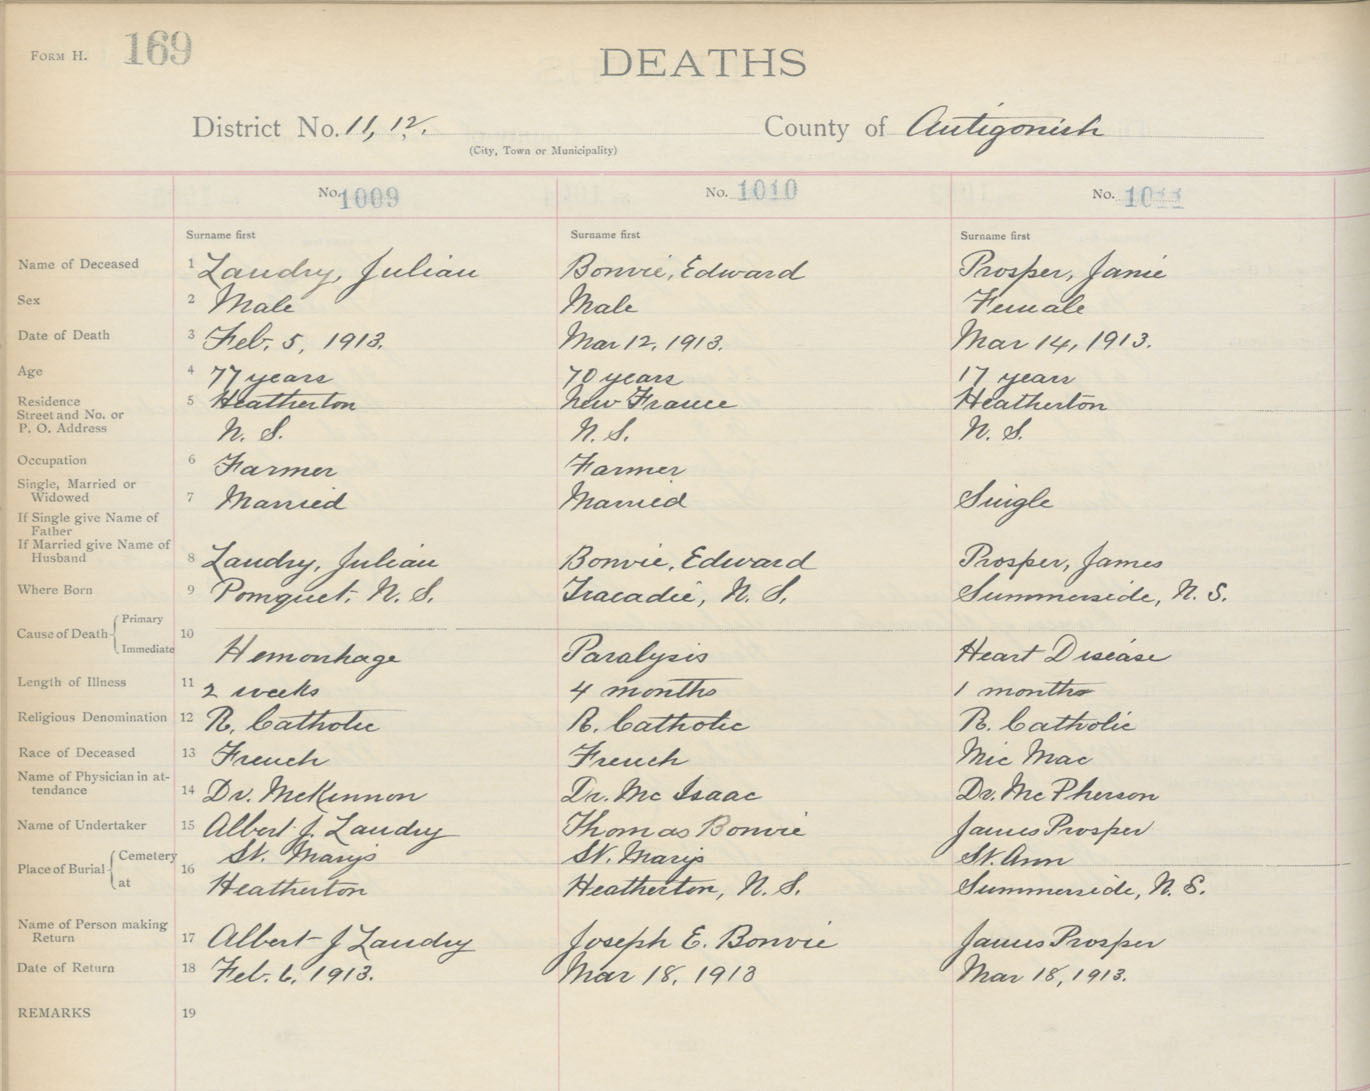 FORM H. 169
DEATHS
District No. 11, 12. County of Antigonish
(City, Town or Municipality)
No. 1009 No. 1010 No. 1011
Surname first Surname first Surname first
Name of Deceased 1 Landry, Julian Bonvie, Edward Prosper, Janie
Sex 2 Male Male Female
Date of Death 3 Feb. 5, 1913. Mar 12, 1913. Mar 14, 1913.
Age 4 77 years 70 years 17 years
Residence 5 Heatherton New France Heatherton
Street and No. or
P. O. Address N. S. N. S. N. S.
Occupation 6 Farmer Farmer
Single, Married or
Widowed 7 Married Married Single
If Single give Name of
Father
If Married give Name of
Husband 8 Landry, Julian Bonvie, Edward Prosper, James
Where Born 9 Pomquet, N. S. Tracadie, N. S. Summerside, N. S.
Cause of Death Primary 10
Immediate Hemorrhage Paralysis Heart Disease
Length of Illness 11 2 weeks 4 months 1 months
Religious Denomination 12 R. Catholic R. Catholic R. Catholic
Race of Deceased 13 French French Mic Mac
Name of Physician in at-
tendance 14 Dr. McKinnon Dr. Mc Isaac Dr. Mc Pherson
Name of Undertaker 15 Albert J. Landry Thomas Bonvie James Prosper
Place of Burial Cemetery 16 St. Marys St. Marys St. Ann
at Heatherton Heatherton, N. S. Summerside, N. S.
Name of Person making
Return 17 Albert J Landry Joseph E. Bonvie James Prosper
Date of Return 18 Feb. 6, 1913. Mar 18, 1913 Mar 18, 1913.
REMARKS 19